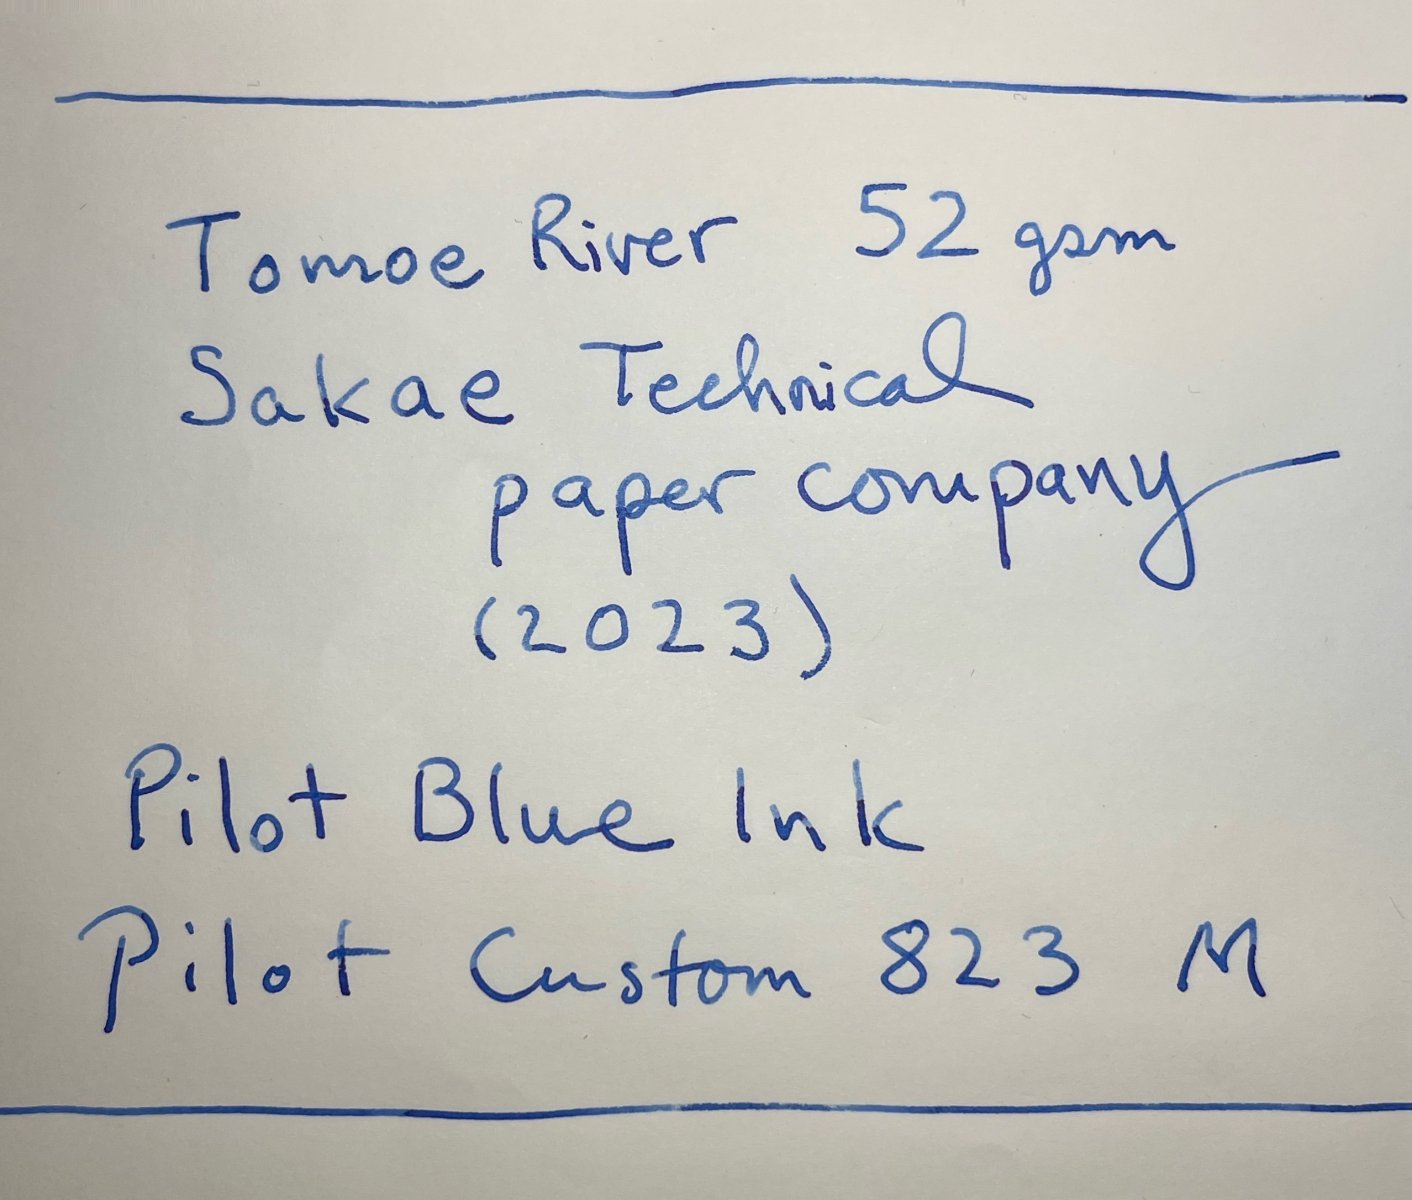 Tomoe River 52 gsm
Sakae Technical
paper company
(2023)
Pilot Blue Ink
Pilot Custom 823 M